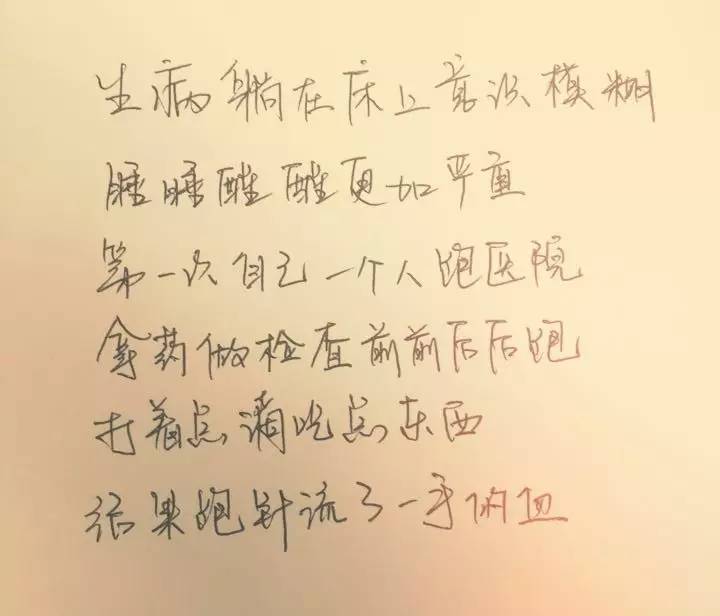 生病躺在床上意识模糊
睡睡醒醒更加严重
第一次自己一个人跑医院
拿药做检查前前后后跑
打着点滴吃点东西
结果跑针流了一手的血